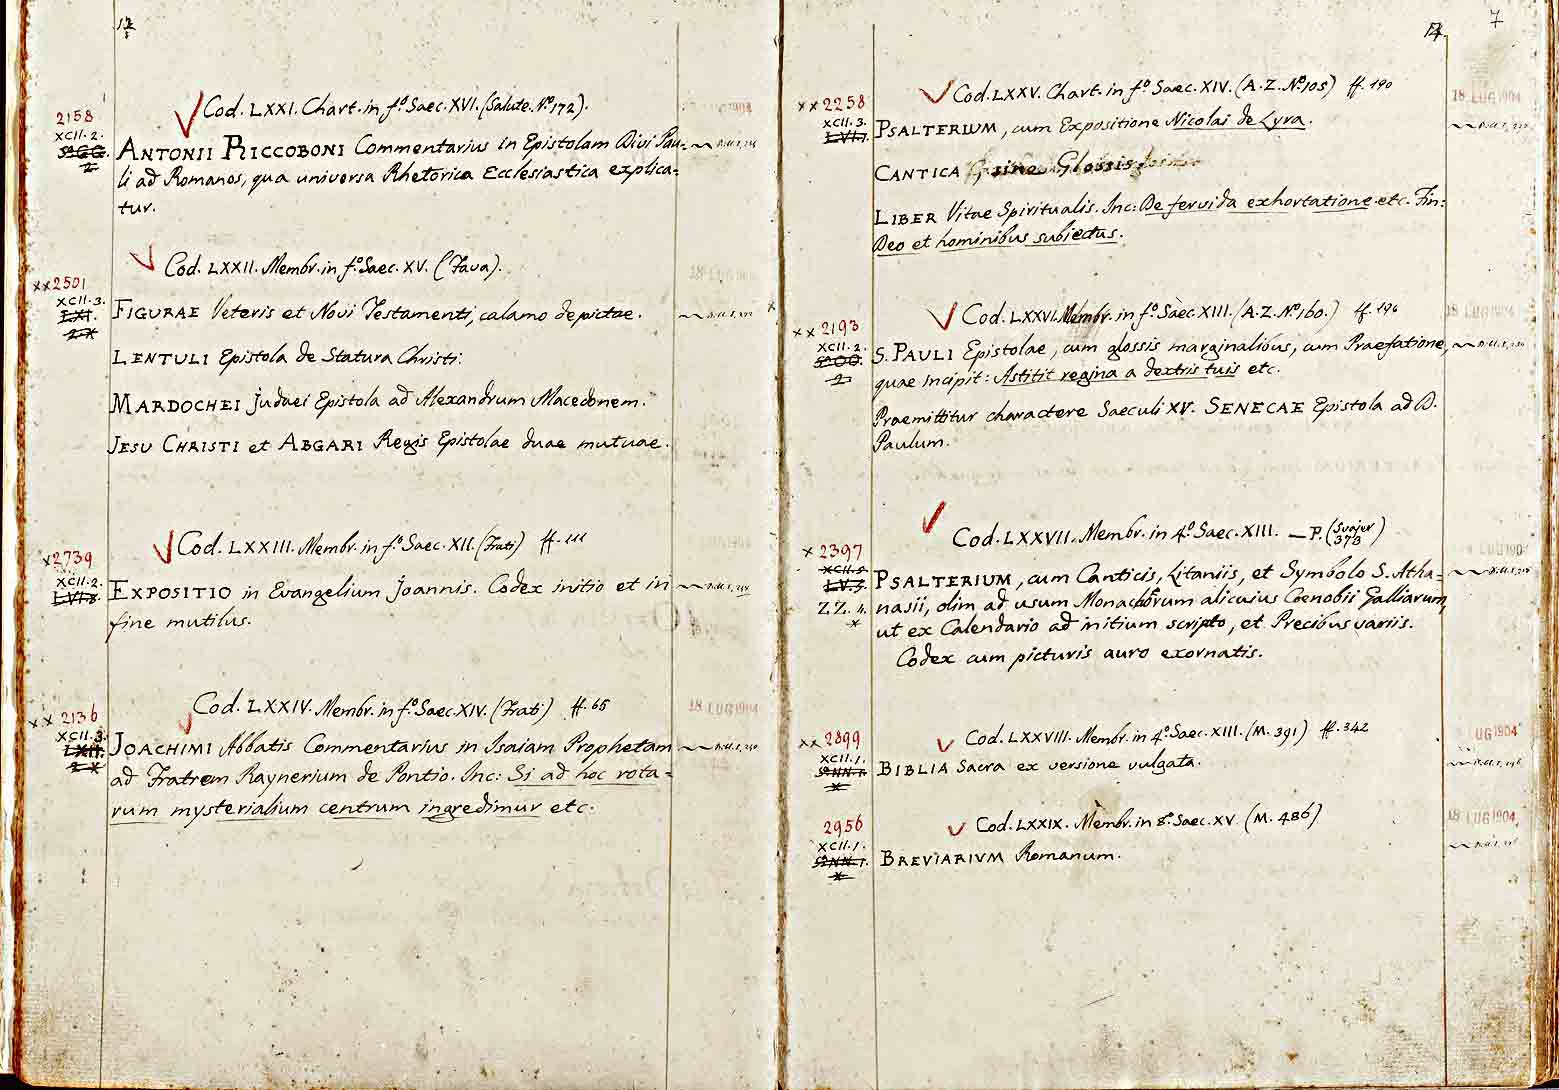 2158
XCII. 2.
Cod. LXXI. Chart. in f.º Saec. XVI. (Salute. Nº. 172).
ANTONII RICCOBONI Commentarius in Epistolam Divi Pau=
li ad Romanos, qua universa Rhetorica Ecclesiastica explica=
tur.
xx 2501
XCII. 3.
Cod. LXXII. Membr. in f.º Saec. XV. (Fava).
FIGURAE Veteris et Novi Testamenti, calamo depictae.
LENTULI Epistola de Statura Christi.
MARDOCHEI Judaei Epistola ad Alexandrum Macedonem.
JESU CHRISTI et ABGARI Regis Epistolae duae mutuae.
x 2739
XCII. 2.
LVI. 8.
Cod. LXXIII. Membr. in f.º Saec. XII. (Frati) ff. 111
EXPOSITIO in Evangelium Joannis. Codex initio et in
fine mutilus.
xx 2136
XCII. 3.
Cod. LXXIV. Membr. in f.º Saec. XIV. (Frati) ff. 65
18 LUG 1904
JOACHIMI Abbatis Commentarius in Isaiam Prophetam
ad Fratrem Raynerium de Pontio. Inc: Si ad hoc rota=
rum mysterialium centrum ingredimur etc.
7
xx 2258
XCII. 3.
Cod. LXXV. Chart. in f.º Saec. XIV. (A. Z. Nº. 105) ff. 190
18 LUG 1904
PSALTERIUM, cum Expositione Nicolai de Lyra.
CANTICA sine Glossis
LIBER Vitae Spiritualis. Inc: De fervida exhortatione etc. Fin:
Deo et hominibus subiectus.
xx 2193
XCII. 2.
Cod. LXXVI. Membr. in f.º Saec. XIII. (A. Z. Nº. 160.) ff. 196
18 LUG 1904
S. PAULI Epistolae, cum glossis marginalibus, cum Praefatione,
quae incipit: Astitit regina a dextris tuis etc.
Praemittitur charactere Saeculi XV. SENECAE Epistola ad D.
Paulum.
x 2397
XCII. 5.
LV. 3.
ZZ. 4.
Cod. LXXVII. Membr. in 4.º Saec. XIII. — P. (Svajer 373)
PSALTERIUM, cum Canticis, Litaniis, et Symbolo S. Atha=
nasii, olim ad usum Monachorum alicuius Coenobii Galliarum,
ut ex Calendario ad initium scripto, et Precibus variis.
Codex cum picturis auro exornatis.
xx 2899
XCII. 1.
Cod. LXXVIII. Membr. in 4.º Saec. XIII. (M. 391) ff. 342
LUG 1904
BIBLIA Sacra ex versione vulgata.
2956
XCII. 1.
Cod. LXXIX. Membr. in 8.º Saec. XV. (M. 486)
18 LUG 1904
BREVIARIVM Romanum.